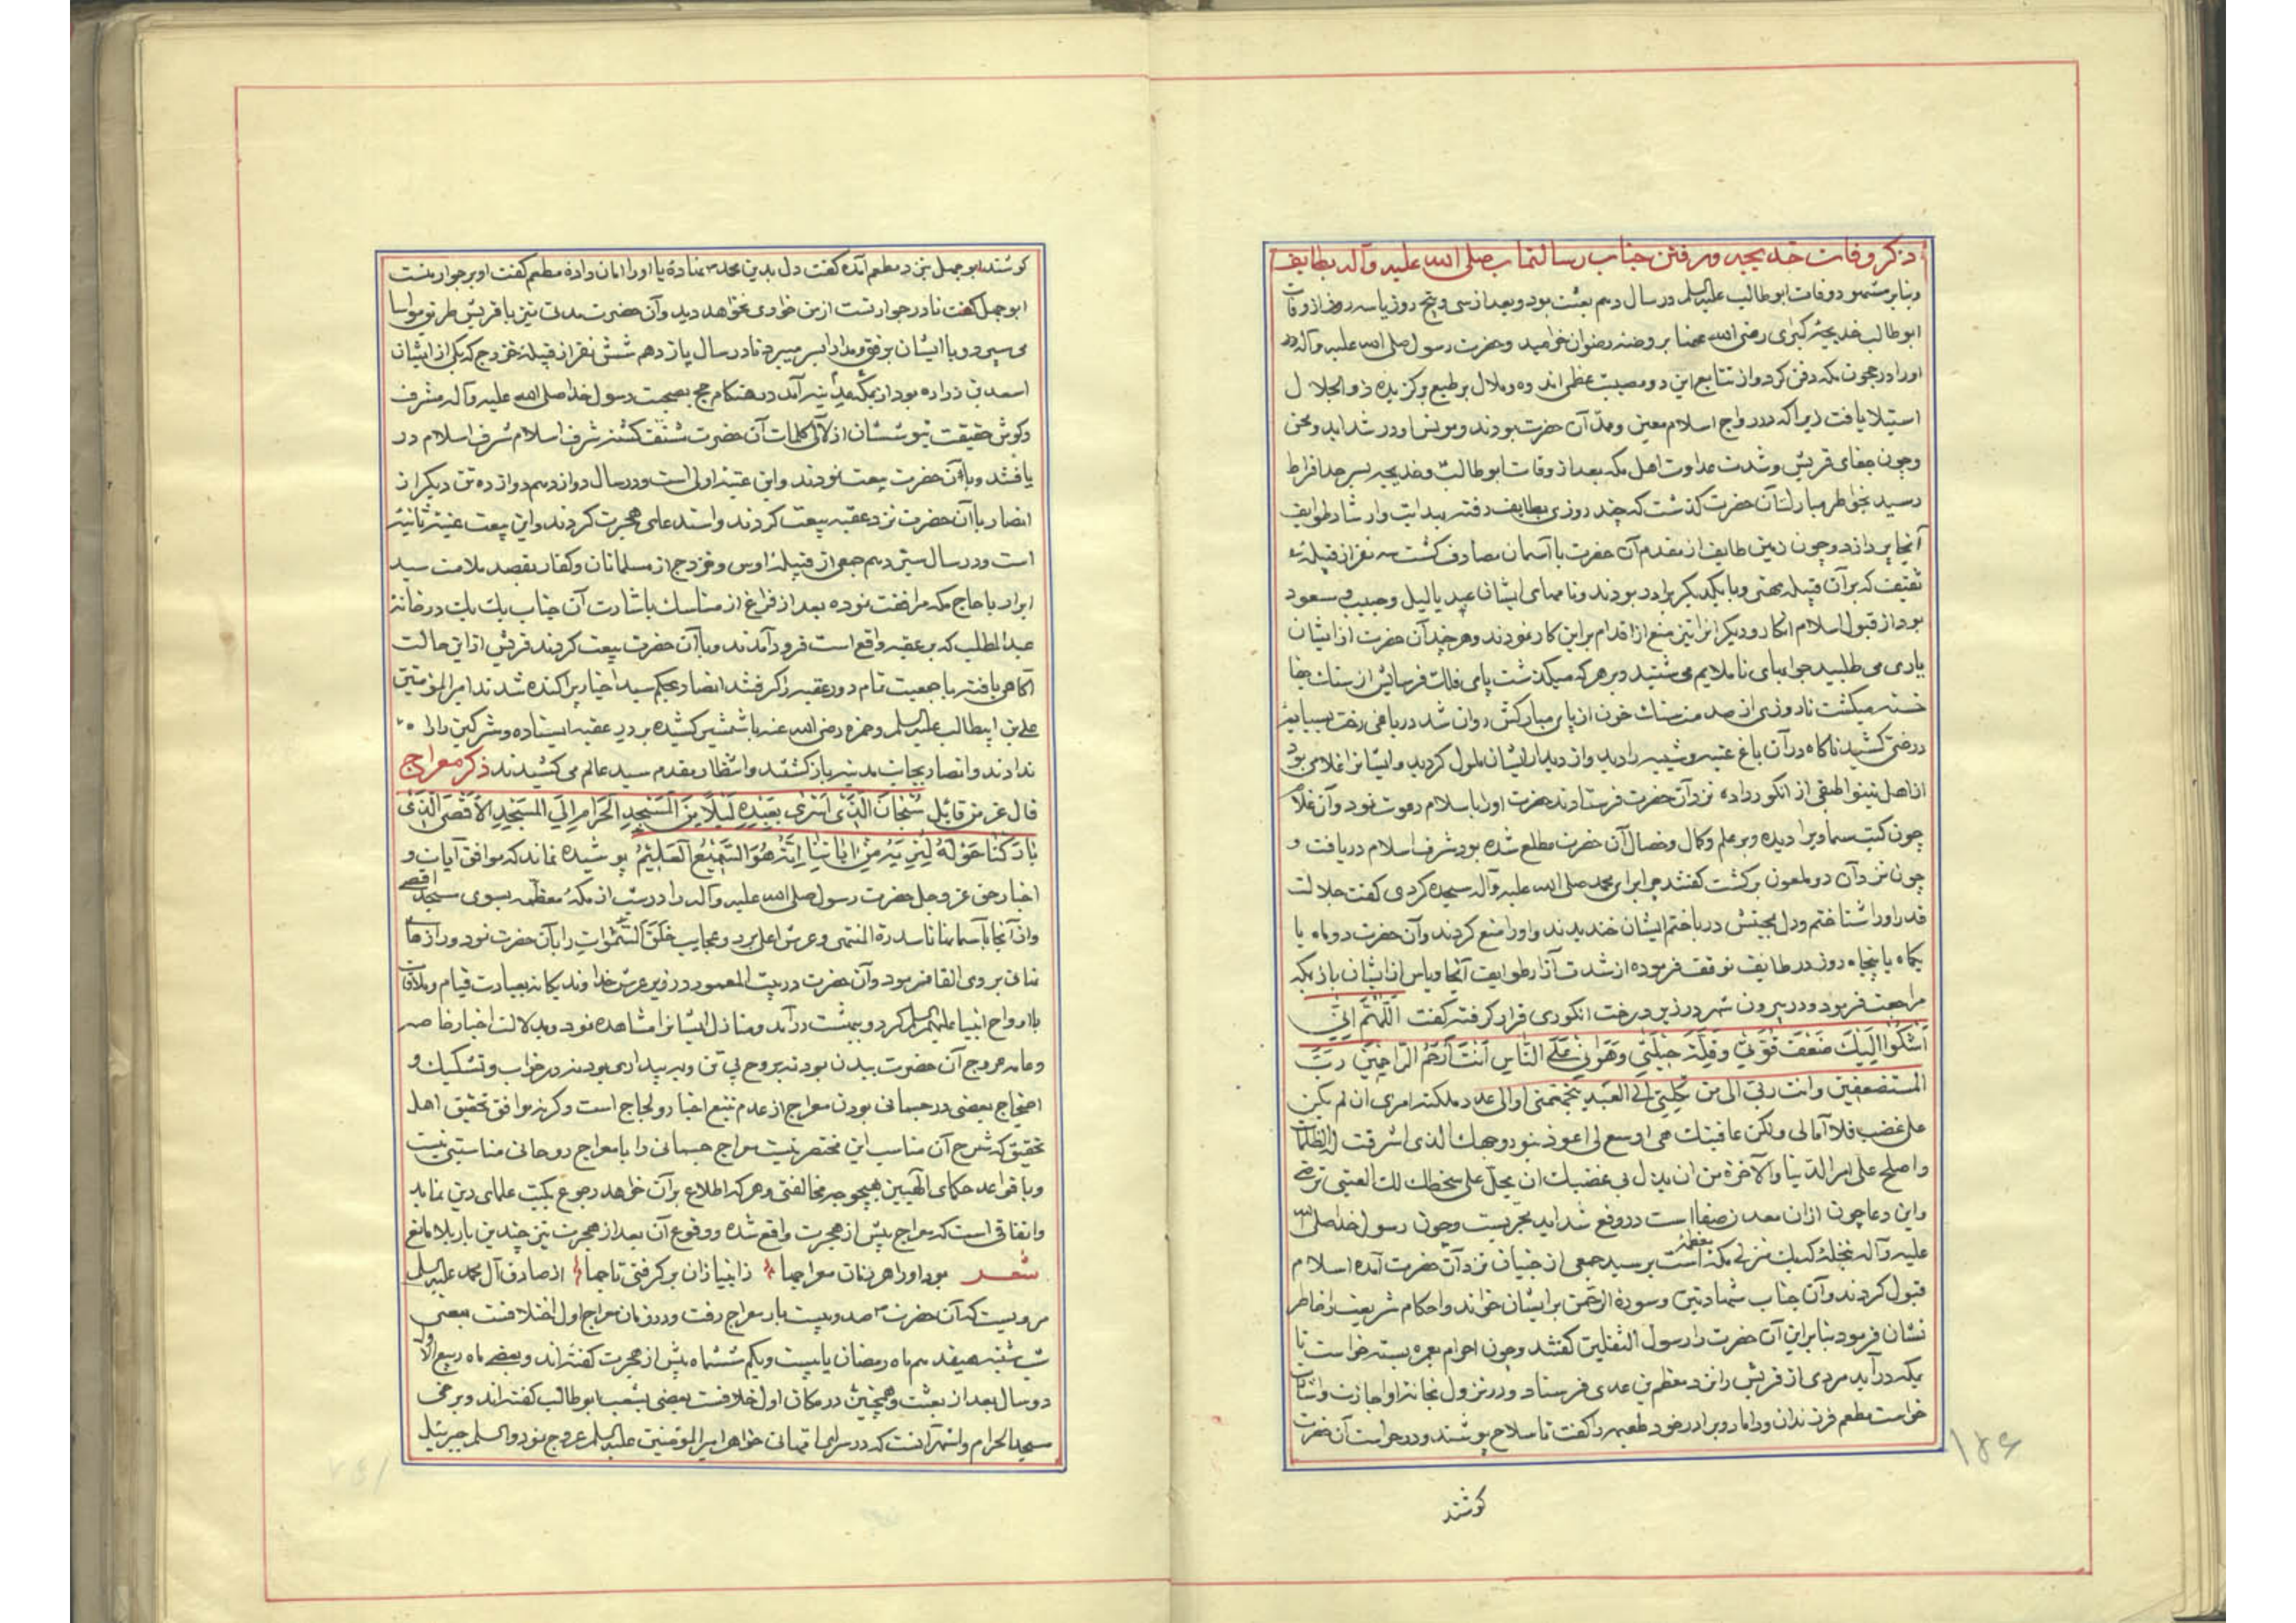 ذکر وفات خدیجه و رفتن جناب رسالتماب صلی الله علیه وآله بطایف
وبنابر مشهور وفات ابوطالب علیه السلم در سال دهم بعثت بود وبعد از سی وپنج روز یا سه روز از وفات
ابوطالب خدیجهٔ کبری رضی الله عنها بروضهٔ رضوان خرامید وحضرت رسول صلی الله علیه وآله
اورا در حجون مکه دفن کرد واز تتابع این دو مصیبت عظمی اندوه وملال بر طبع برکزیده ذوالجلال
استیلا یافت زیرا که در رواج اسلام معین وممد آن حضرت بودند ومونس او در شداید ومحن
وچون جفای قریش وشدت عداوت اهل مکه بعد از وفات ابوطالب وخدیجه بسرحد افراط
رسید بخاطر مبارک آن حضرت کذشت که چند روزی بطایف رفته بهدایت وارشاد طوایف
آنجا پردازد وچون زمین طایف از مقدم آن حضرت با آسمان مصادف کشت سه نفر از قبیلهٔ
ثقیف که بر آن قبیله مهتر وبا یکدیکر برادر بودند ونامهای ایشان عبد یالیل وحبیب ومسعود
بود از قبول اسلام انکار ودیکرانرا نیز منع از اقدام بر این کار نمودند وهر چند آن حضرت از ایشان
یاری می طلبید جوابهای ناملایم می شنید وبر هر که میکذشت پای فلک فرسایش از سنک جفا
خسته میکشت تا روزی از صدمهٔ سنک خون از پای مبارکش روان شد در باغی رخت بسایه
درختی کشید ناکاه در آن باغ عتبه وشیبه را دید واز دیدار ایشان ملول کردید وایشانرا غلامی بود
از اهل نینوا طبقی از انکور داده نزد آن حضرت فرستادند حضرت اورا باسلام دعوت نمود وآن غلام
چون کتب سماویرا دیده وبر علم وکمال وخصال آن حضرت مطلع شده بود شرف اسلام دریافت و
چون نزد آن دو ملعون برکشت کفتند چرا برای محمد صلی الله علیه وآله سجده کردی کفت جلالت
قدر اورا شناختم ودل بمحبتش درباختم ایشان خندیدند واورا منع کردند وآن حضرت دو ماه یا
یکماه یا پنجاه روز در طایف توقف فرموده از شدت آزار طوایف آنجا ویاس از ایشان باز بمکه
مراجعت فرمود ودر بیرون شهر در زیر درخت انکوری قرار کرفته کفت اَللّٰهُمَّ اِنّی
اَشْکُوا اِلَیْکَ ضَعْفَ قُوَّتی وَقِلَّةَ حیلَتی وَهَوانی عَلَی النّاسِ اَنْتَ اَرْحَمُ الرّاحِمینَ رَبُّ
المستضعفین وانت ربی الی من تکلنی الی العبد یتجهمنی او الی عدو ملکته امری ان لم یکن
علی غضب فلا ابالی ولکن عافیتک هی اوسع لی اعوذ بنور وجهک الذی اشرقت له الظلمات
واصلح علی امر الدنیا والآخرة من ان ینزل بی غضبک ان یحل علی سخطک لک العتبی ترضی
واین دعا چون ازان معدن صفا است در رفع شداید مجربست وچون رسول خدا صلی الله
علیه وآله بنخله که یک منزلی مکه معظمه است برسید جمعی از جنیان نزد آن حضرت آمده اسلام
قبول کردند وآن جناب شهادتین وسورهٔ الرحمن بر ایشان خواند واحکام شریعت را خاطر
نشان فرمود بنا براین آن حضرت را رسول الثقلین کفتند وچون احرام بعمره بسته خواست تا
بمکه درآید مردی از قریش را نزد مطعم بن عدی فرستاد ودر نزول بخانهٔ او اجازت
خواست مطعم فرزندان وداماد وبرادر خود طعیمه را کفت تا سلاح پوشند ودر حراست آن حضرت
کوشند
کوشند ابوجهل نزد مطعم آمده کفت دل بدین محمد نهاده یا اورا امان داده مطعم کفت او بر جوار منست
ابوجهل کفت تا در جوار تست از من خواری نخواهد دید وآن حضرت مدتی نیز با قریش طریق مواسا
می سپرد وبا ایشان برفق ومدارا بسر میبرد تا در سال یازدهم شش نفر از قبیلهٔ خزرج که یکی از ایشان
اسعد بن زراره بود از مدینه آمد در هنکام حج بصحبت رسول خدا صلی الله علیه وآله مشرف
وکوش حقیقت نیوششان از لآلی کلمات آن حضرت مشنف کشته شرف اسلام در
یافتند وبا آن حضرت بیعت نمودند واین عقبهٔ اولی است ودر سال دوازدهم دوازده تن دیکر از
انصار با آن حضرت نزد عقبه بیعت کردند واسند علی هجرت کردند واین بیعت عقبهٔ ثانیه
است ودر سال سیزدهم جمعی از قبیلهٔ اوس وخزرج از مسلمانان وکفار بقصد ملامت سید
ابرار با حاج مکه مرافقت نموده بعد از فراغ از مناسک باشارت آن جناب یک یک در خانهٔ
عبدالمطلب که بر عقبه واقع است فرود آمدند وبا آن حضرت بیعت کردند قریش ازاین حالت
آکاهی یافته با جمعیت تمام دور عقبه را کرفتند انصار بحکم سید اخیار پراکنده شدند امیرالمؤمنین
علی بن ابیطالب علیه السلم وحمزه رضی الله عنه با شمشیر کشیده بر در عقبه ایستاده ومشرکین را راه
ندادند وانصار بجانب مدینه باز کشتند وانتظار مقدم سید عالم می کشیدند ذکر معراج
قال عز من قائل سُبْحانَ الَّذی اَسْری بِعَبْدِهِ لَیْلاً مِنَ الْمَسْجِدِ الْحَرامِ اِلَی الْمَسْجِدِ الْاَقْصَی الَّذی
بارَکْنا حَوْلَهُ لِنُرِیَهُ مِنْ اٰیاتِنا اِنَّهُ هُوَ السَّمیعُ الْعَلیمُ پوشیده نماند که موافق آیات و
اخبار حق عز وجل حضرت رسول صلی الله علیه وآله را در شب از مکهٔ معظمه بسوی مسجد اقصی
واز آنجا بآسمانها تا سدرة المنتهی وعرش اعلی برد وعجایب خلق السموات را بآن حضرت نمود ورازهای
نهانی بر وی القا فرمود وآن حضرت در بیت المعمور در زیر عرش خداوند یکانه بعبادت قیام وملاقات
با ارواح انبیا علیهم السلم کرد وببهشت درآمد ومنازل ایشانرا مشاهده نمود وبدلالت اخبار خاصه
وعامه عروج آن حضرت ببدن بود نه بروح بی تن وببیداری بود نه در خواب وتشکیک و
احتجاج بعضی در جسمانی بودن معراج از عدم تتبع اخبار ولجاج است وکرنه موافق تحقیق اهل
تحقیق که شرح آن مناسب این مختصر نیست معراج جسمانی را با معراج روحانی مناسبتی نیست
وبا قواعد حکمای الهیین هیچوجه مخالفتی وهر که اطلاع بر آن خواهد رجوع بکتب علمای دین نماید
واتفاقی است که معراج پیش از هجرت واقع شده ووقوع آن بعد از هجرت نیز چندین بار بلا مانع
شعر بود اورا هر زمان معراجها زانبیا زان برکرفتی تاجها از صادق آل محمد علیه السلم
مرویست که آن حضرت صد وبیست بار بمعراج رفت ودر زمان معراج اول اختلافست بعضی
شب شنبه هیفدهم ماه رمضان یا بیست ویکم ششماه پیش از هجرت کفته اند وبعضی ماه ربیع الاول
دو سال بعد از بعثت وهمچنین در مکان اول خلافست بعضی بشعب ابوطالب کفته اند وبرخی
مسجد الحرام واشهر آنست که در سرای ام هانی خواهر امیرالمؤمنین علیه السلم عروج نمود والسلم جبرئیل
۱۴۶